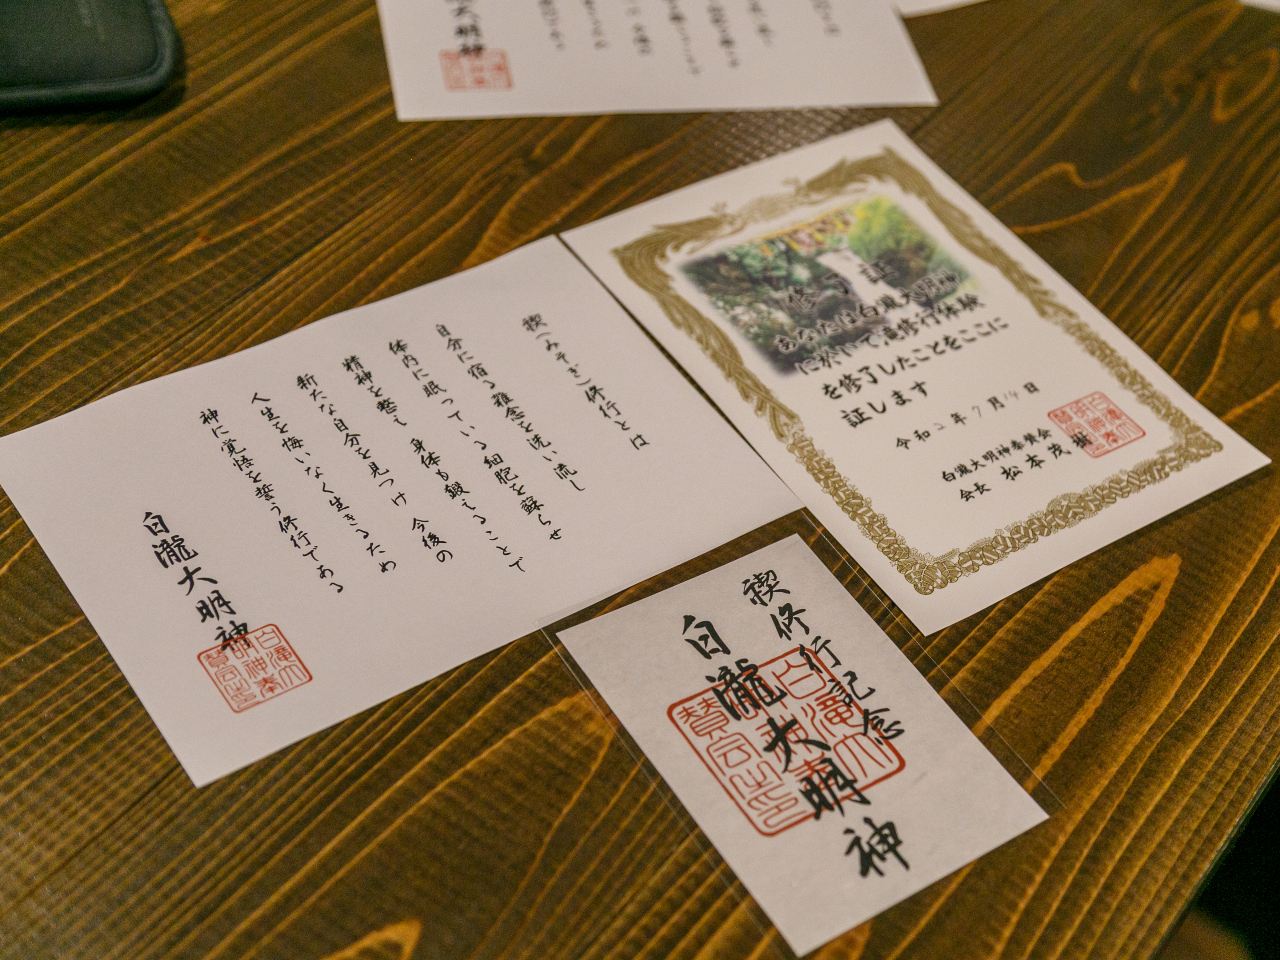 大明神
禊(みそぎ)修行とは
自分に宿る雑念を洗い流し
体内に眠っている細胞を蘇らせ
精神を整え 身体も鍛えることで
新たな自分を見つけ 今後の
人生を悔いなく生きるため
神に覚悟を誓う修行である
白瀧大明神
白滝大明神奉賛会之印
修了証
あなたは白瀧大明神
において滝修行体験
を修了したことをここに
証します
令和2年7月14日
白瀧大明神奉賛会
会長 松本茂樹
禊修行記念
白瀧大明神
白滝大明神奉賛会之印